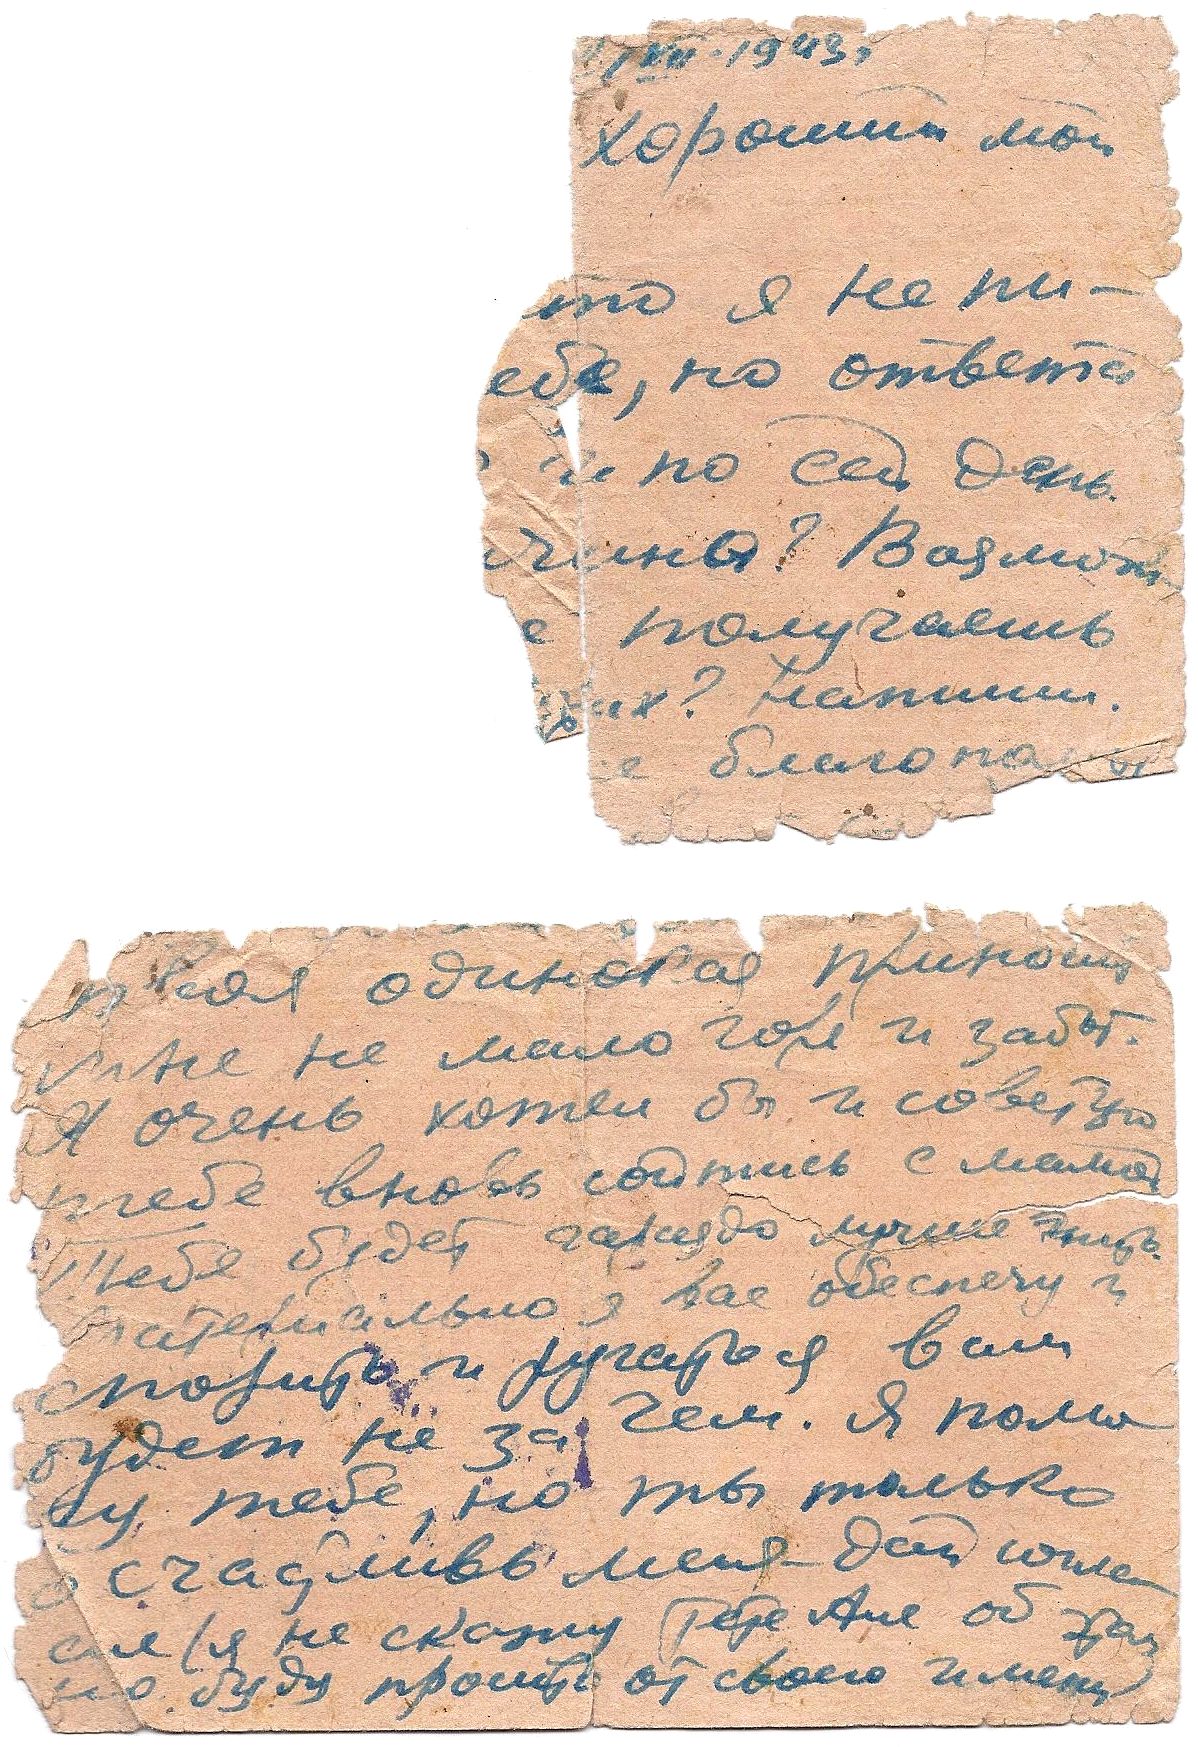 VII - 1943г
хороший мой
то я не пи-
ебе, но ответа
и по сей день.
чина? Возмож
е получаешь
их? Напиши.
е благопол
твоя одинокая приноси
мне не мало горя и забот.
Я очень хотел бы и советую
тебе вновь сойтись с мамой
Тебе будет гораздо лучше жить.
материально я вас обеспечу и
спорить и ругаться вам
будет не за чем. Я помо
гу тебе, но ты только
осчасливь меня - дай согла
сие (я не скажу Тете Ане об
но буду просить от своего имени)